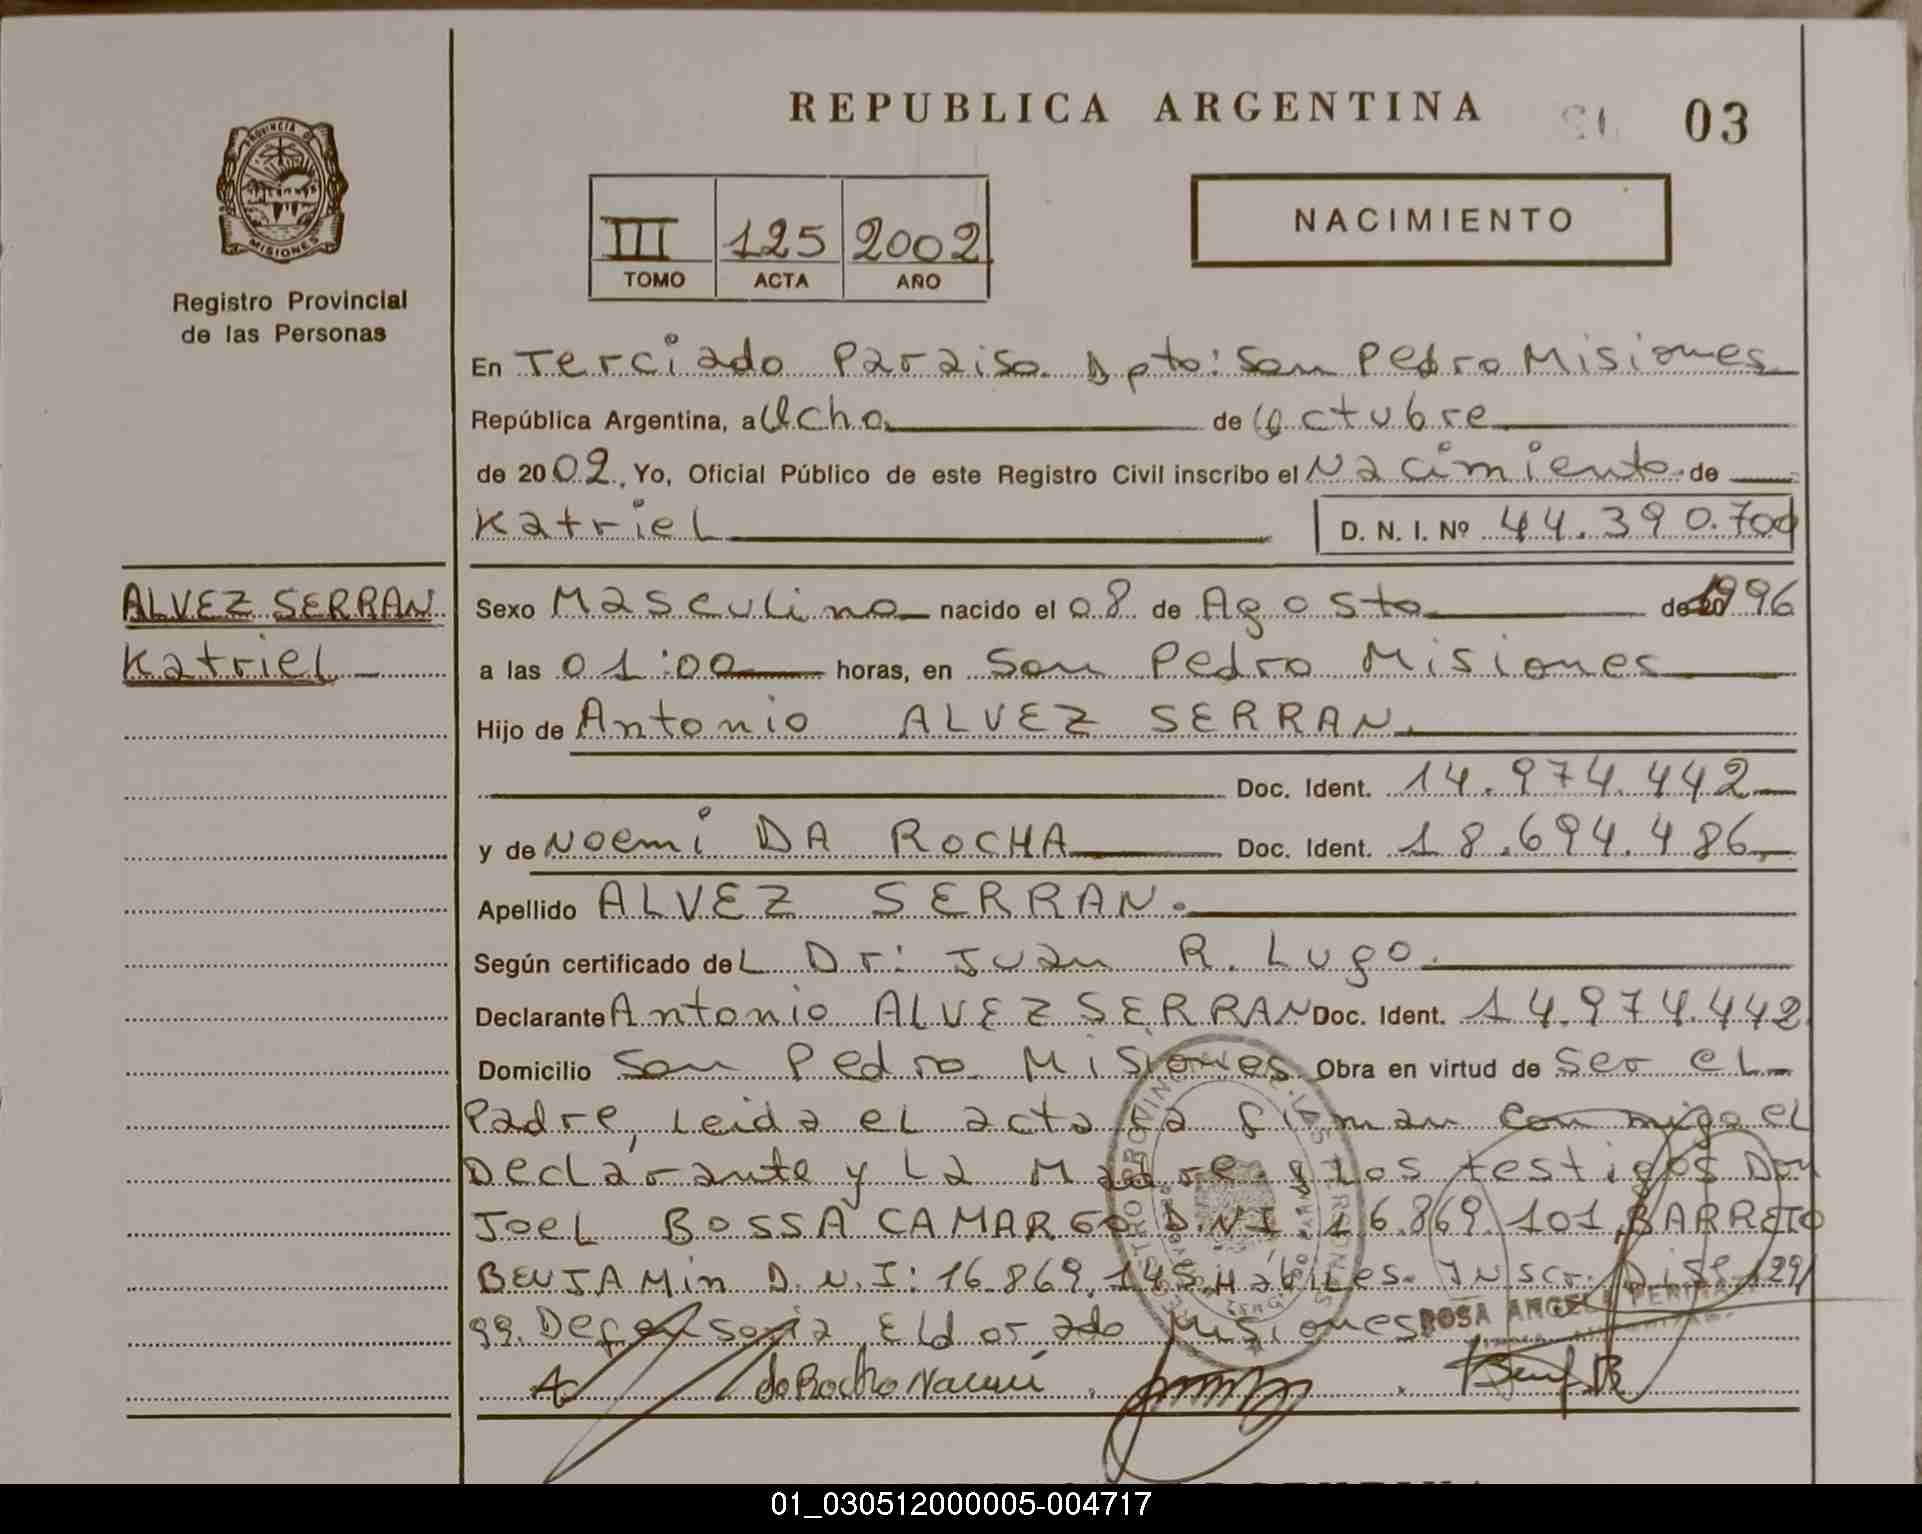 REPUBLICA ARGENTINA
03
PROVINCIA DE
MISIONES
Registro Provincial
de las Personas
III 125 2002
TOMO ACTA AÑO
NACIMIENTO
En Terciado Paraiso Dpto: San Pedro Misiones
República Argentina, a Ocho de Octubre
de 2002. Yo, Oficial Público de este Registro Civil inscribo el Nacimiento de
Katriel D. N. I. Nº 44.390.700
ALVEZ SERRAN
Katriel
Sexo Masculino nacido el 08 de Agosto de 1996
a las 01:00 horas, en San Pedro Misiones
Hijo de Antonio ALVEZ SERRAN.
Doc. Ident. 14.974.442
y de Noemi DA ROCHA Doc. Ident. 18.694.486
Apellido ALVEZ SERRAN.
Según certificado del Dr: Juan R. Lugo.
Declarante Antonio ALVEZ SERRAN Doc. Ident. 14.974.442
Domicilio San Pedro Misiones Obra en virtud de ser el
Padre, Leida el acta la firman conmigo el
Declarante y La Madre y Los testigos Don
Joel BOSSA CAMARGO D.N.I 16.869.101, BARRETO
BENJAMin D.N.I: 16.869.145 Hábiles. Inscr. Disp 1291
99. Defensoria Eldorado Misiones
ROSA ANGELA
da Rocha Naemi
01_030512000005-004717